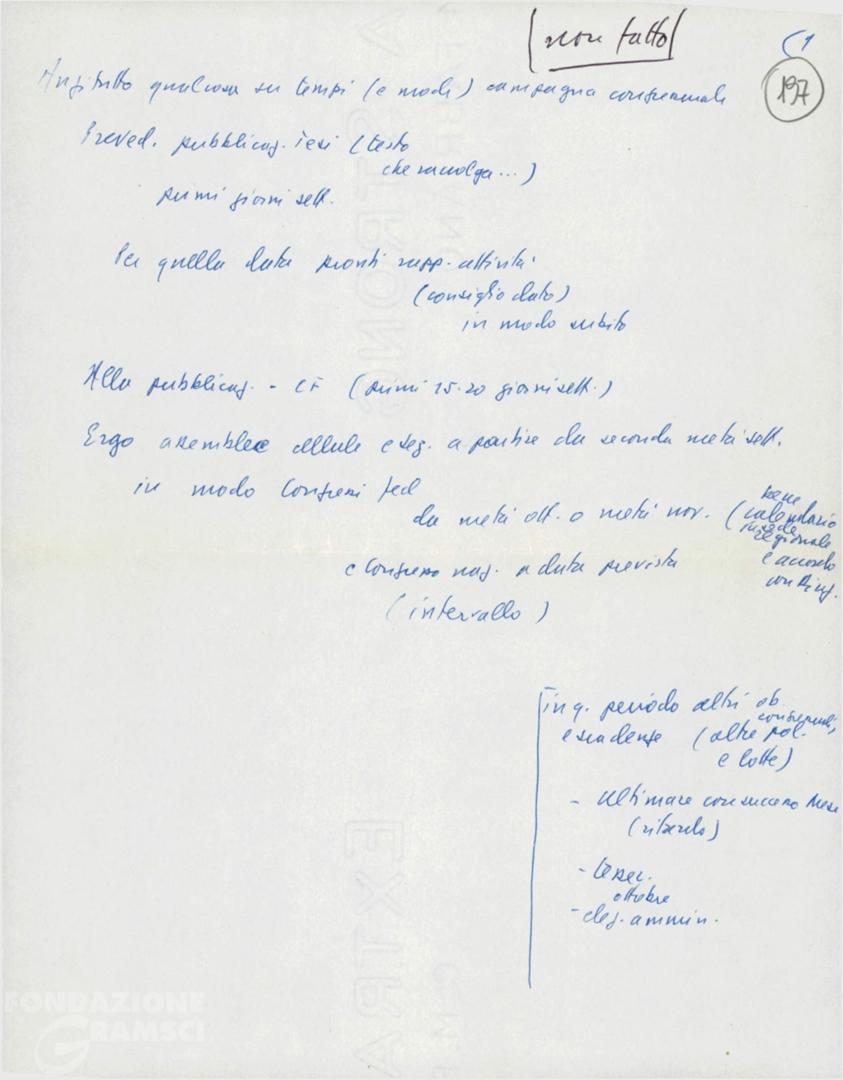 (non fatto)
(1
197
Anzitutto qualcosa su tempi (e modi) campagna congressuale
Preved. pubblicaz. Tesi (testo
che raccolga...)
primi giorni sett.
Per quella data pronti rapp. attività
(consiglio dato)
in modo subito
Alla pubblicaz. - CF (primi 15-20 giorni sett.)
Ergo assemblee cellule e sez. a partire da seconda metà sett.
in modo Congressi fed
da metà ott. a metà nov. (bene
calendario
in sede
regionale
e accordo
con
e Congresso naz. a data prevista
(intervallo)
In q. periodo altri ob. congressuali,
e scadenze (altre pol.
e lotte)
- Ultimare con successo Mese
(ritardo)
- tesser.
ottobre
- elez. ammin.
FONDAZIONE
GRAMSCI
EXTRA STRONG